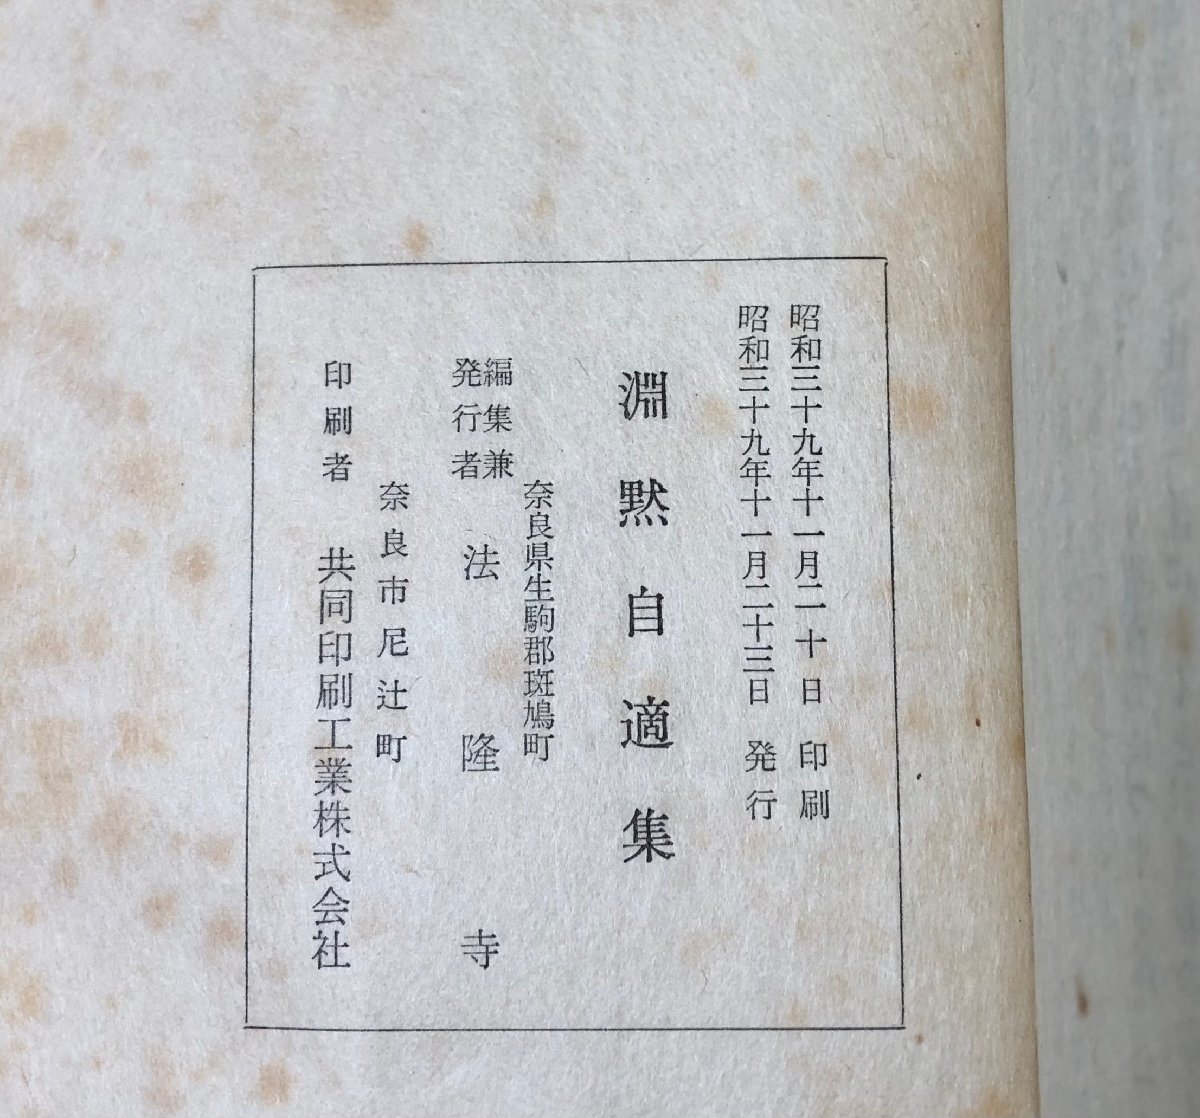 昭和三十九年十一月二十日 印刷
昭和三十九年十一月二十三日 発行
淵黙自適集
奈良県生駒郡斑鳩町
編集兼
発行者 法隆寺
奈良市尼辻町
印刷者 共同印刷工業株式会社